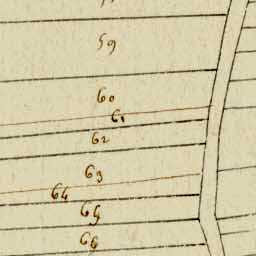 59
60
61
62
63
64
65
66